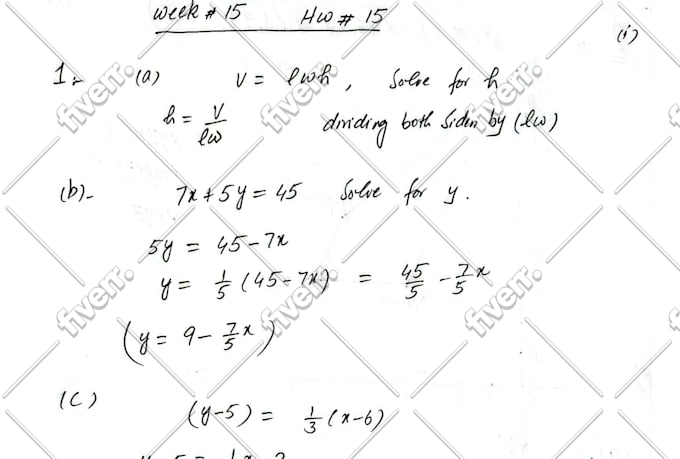 week # 15 HW # 15
(i)
1:- (a) V = lwh, Solve for h
h = V/lw dividing both sides by (lw)
(b)- 7x + 5y = 45 Solve for y.
5y = 45 - 7x
y = 1/5 (45 - 7x) = 45/5 - 7/5 x
(y = 9 - 7/5 x)
(C) (y-5) = 1/3 (x-6)
fiverr.
fiverr.
fiverr.
fiverr.
fiverr.
fiverr.
fiverr.
fiverr.
fiverr.